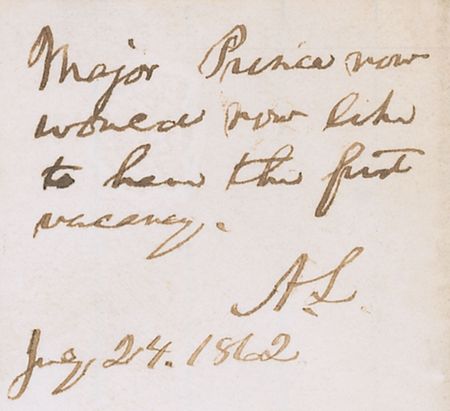 Major Prince now
would now like
to have the first
vacancy.
A.L.
July 24. 1862